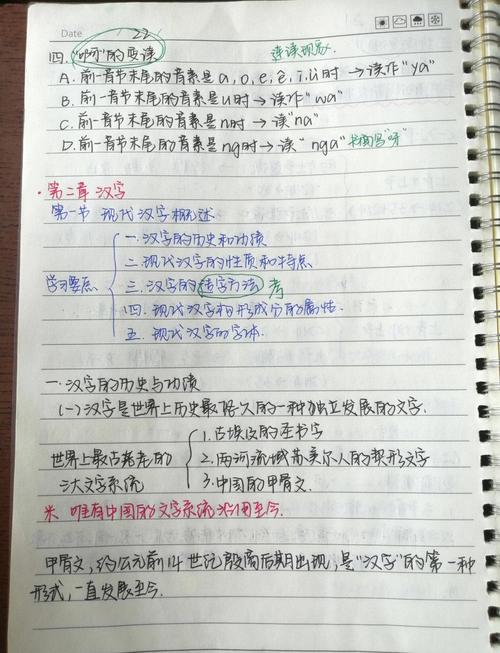 Date 22
四."啊"的变读 连读现象.
A.前一音节末尾的音素是a,o,e,ê,i,ü时→读作"ya"
B.前一音节末尾的音素是u时→读作"wa"
C.前一音节末尾的音素是n时→读"na"
D.前一音节末尾的音素是ng时→读"nga" 书面写"呀"
·第二章 汉字
第一节 现代汉字概述
学习要点
一.汉字的历史和功绩
二.现代汉字的性质和特点
三.汉字的造字方法 考
四.现代汉字构形成分的属性.
五.现代汉字的字体.
一.汉字的历史与功绩
(一)汉字是世界上历史最悠久的一种独立发展的文字.
世界上最古老的
三大文字系统
1.古埃及的圣书字
2.两河流域苏美尔人的楔形文字
3.中国的甲骨文.
※ 唯有中国的文字系统沿用至今.
甲骨文,约公元前14世纪殷商后期出现,是"汉字"的第一种
形式,一直发展至今.